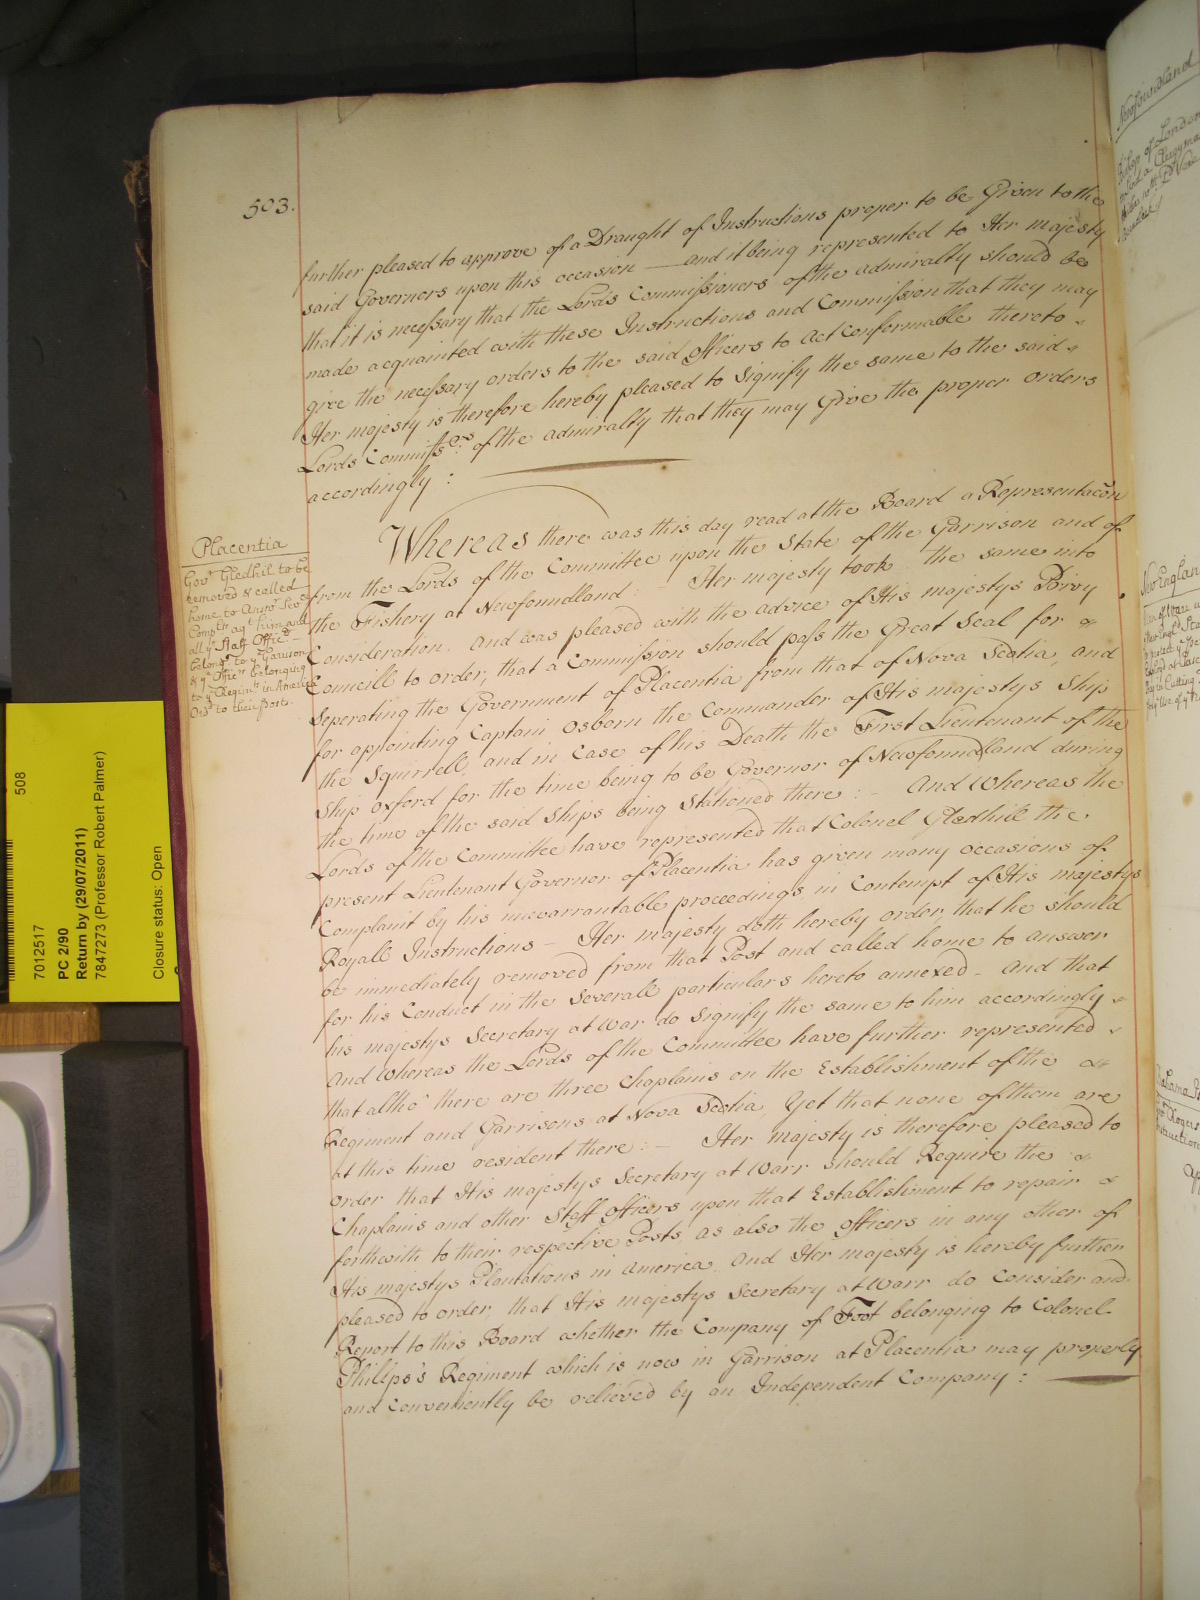 503.
further pleased to approve of a Draught of Instructions proper to be Given to the
said Governors upon this occasion — and it being represented to Her majesty
that it is necessary that the Lords Commissioners of the admiralty should be
made acquainted with these Instructions and Commission that they may
give the necessary orders to the said officers to Act conformable thereto
Her majesty is therefore hereby pleased to Signify the same to the said
Lords Commissrs. of the admiralty that they may Give the proper orders
accordingly :
Placentia
Govr. Gledhil to be
removed & called
home to Answr. Sevl.
Complts. agt. him and
all ye. Staff Officrs.
belongg. to ye. Garrison
& ye. Officrs. belonging
to ye. Regimts. in America
Ord. to their posts.
Whereas there was this day read at the Board a Representacon
from the Lords of the Committee upon the State of the Garrison and of
the Fishery at Newfoundland : Her majesty took the same into
Consideration, And was pleased with the advice of His majestys Privy
Councill to order, that a Commission should pass the Great Seal for
Seperating the Government of Placentia from that of Nova Scotia, and
for appointing Captain Osborn the Commander of His majestys Ship
the Squirrell, and in Case of his Death the First Lieutenant of the
Ship oxford for the time being to be Governor of Newfoundland during
the time of the said Ships being Stationed there : — And Whereas the
Lords of the Committee have represented that Colonel Gledhill the
present Lieutenant Governor of Placentia has given many occasions of
Complaint by his unwarrantable proceedings in Contempt of His majestys
Royall Instructions — Her majesty doth hereby order, that he should
be immediately removed from that Post and called home to answer
for his Conduct in the Severall particulars hereto annexed — And that
his majestys Secretary at War do Signify the same to him accordingly
And Whereas the Lords of the Committee have further represented
that altho' there are three Chaplains on the Establishment of the
Regiment and Garrisons at Nova Scotia, Yet that none of them are
at this time resident there : — Her majesty is therefore pleased to
order that His majestys Secretary at Warr should Require the
Chaplains and other Staff officers upon that Establishment to repair
forthwith to their respective Posts as also the officers in any other of
His majestys Plantations in America. And Her majesty is hereby further
pleased to order, that His majestys Secretary at Warr do Consider and
Report to this Board whether the Company of Foot belonging to Colonel
Phillps's Regiment which is now in Garrison at Placentia may properly
and Conveniently be relieved by an Independent Company :
508
7012517
PC 2/90
Return by (29/07/2011)
7847273 (Professor Robert Palmer)
Closure status: Open
Newfoundland